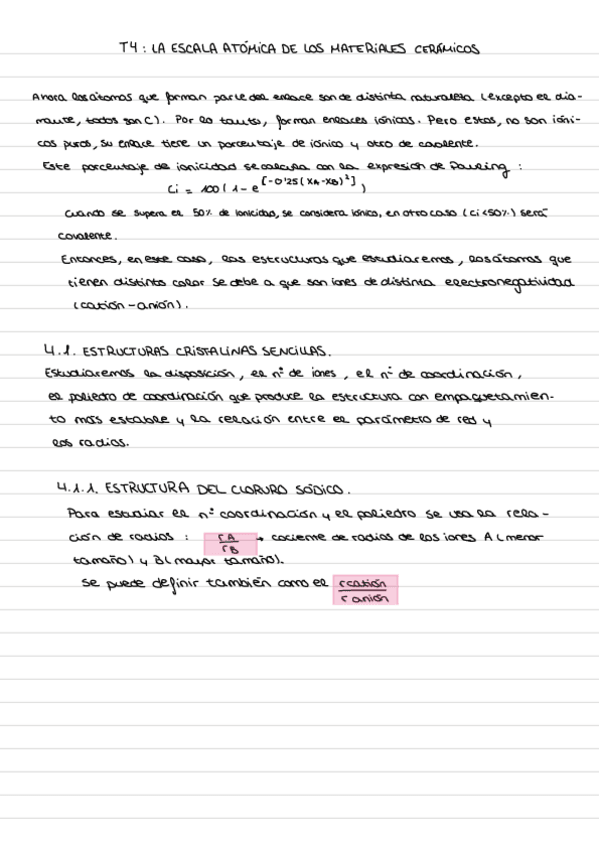 T4: LA ESCALA ATÓMICA DE LOS MATERIALES CERÁMICOS
Ahora los átomos que forman parte del enlace son de distinta naturaleza (excepto el dia-
mante, todos son C). Por lo tanto, forman enlaces iónicos. Pero estos, no son ióni-
cos puros, su enlace tiene un porcentaje de iónico y otro de covalente.
Este porcentaje de ionicidad se calcula con la expresión de Pauling :
Ci = 100 ( 1 - e^[-0'25 (XA - XB)²] )
Cuando se supera el 50% de ionicidad, se considera iónico, en otro caso (Ci<50%) será
covalente.
Entonces, en este caso, las estructuras que estudiaremos, los átomos que
tienen distinto color se debe a que son iones de distinta electronegatividad
(catión-anión).
4.1. ESTRUCTURAS CRISTALINAS SENCILLAS.
Estudiaremos la disposición, el nº de iones, el nº de coordinación,
el poliedro de coordinación que produce la estructura con empaquetamien-
to más estable y la relación entre el parámetro de red y
los radios.
4.1.1. ESTRUCTURA DEL CLORURO SÓDICO.
Para estudiar el nº coordinación y el poliedro se usa la rela-
ción de radios : rA/rB → cociente de radios de los iones A (menor
tamaño) y B (mayor tamaño).
Se puede definir también como el rcatión/ranión